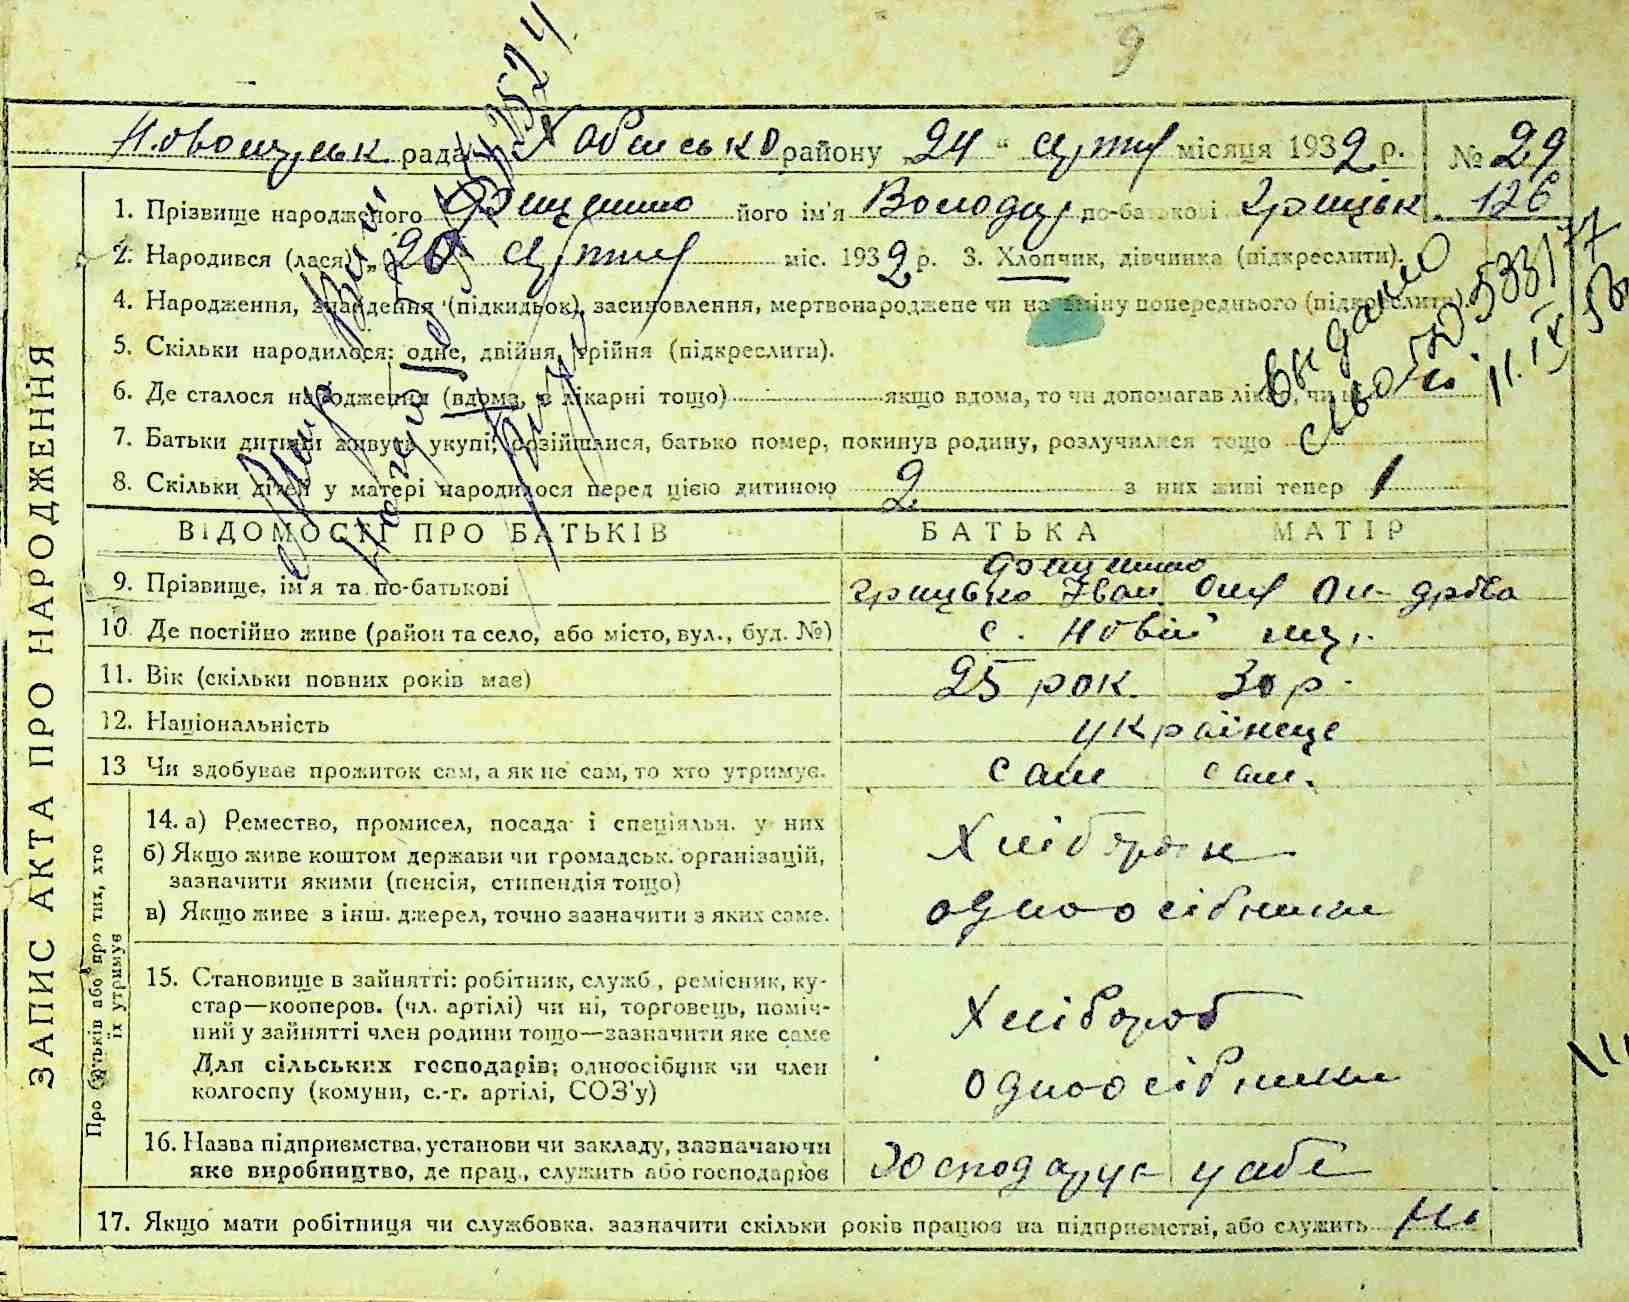 9
рада району „24“ місяця 1932 р. № 29
1. Прізвище народженого його ім'я Володир по-батькові Грицьк. 126
2. Народився (лася) „20 міс. 1932 р. 3. Хлопчик, дівчинка (підкреслити).
4. Народження, знайдення (підкидьок), засиновлення, мертвонароджене чи на зміну попереднього (підкреслити).
5. Скільки народилося: одне, двійня, трійня (підкреслити).
6. Де сталося народження (вдома, в лікарні тощо) якщо вдома, то чи допомагав лікар, чи
7. Батьки дитини живуть укупі, розійшлися, батько помер, покинув родину, розлучилися тощо
8. Скільки дітей у матері народилося перед цією дитиною 2 з них живі тепер 1
выдано
11. IX
ЗАПИС АКТА ПРО НАРОДЖЕННЯ
ВІДОМОСТІ ПРО БАТЬКІВ БАТЬКА МАТІР
9. Прізвище, ім'я та по-батькові Грицько Іван.
10. Де постійно живе (район та село, або місто, вул., буд. №) с. Новій
11. Вік (скільки повних років має) 25 рок. 30 р.
12. Національність українець
13 Чи здобуває прожиток сам, а як не сам, то хто утримує. сам сам.
Про батьків або про тих, хто їх утримує
14. а) Ремество, промисел, посада і спеціяльн. у них
б) Якщо живе коштом держави чи громадськ. організацій,
зазначити якими (пенсія, стипендія тощо)
в) Якщо живе з інш. джерел, точно зазначити з яких саме. одноосібники
15. Становище в зайнятті: робітник, служб., ремісник, ку-
стар—кооперов. (чл. артілі) чи ні, торговець, поміч-
ний у зайнятті член родини тощо—зазначити яке саме Хлібороб
Для сільських господарів; одноосібник чи член
колгоспу (комуни, с.-г. артілі, СОЗ'у) одноосібники
16. Назва підприємства, установи чи закладу, зазначаючи
яке виробництво, де прац., служить або господарює Господарує у себе
17. Якщо мати робітниця чи службовка, зазначити скільки років працює на підприємстві, або служить Ні